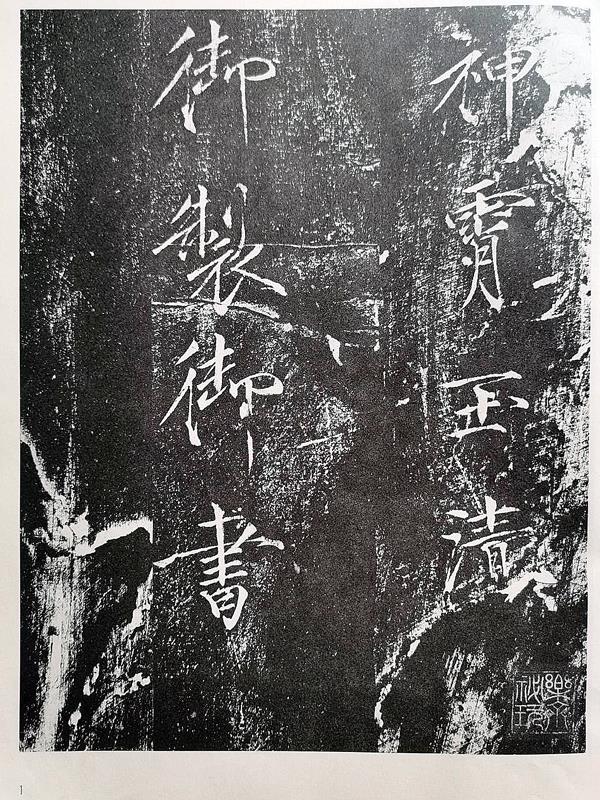 神霄玉清
御製御書
1